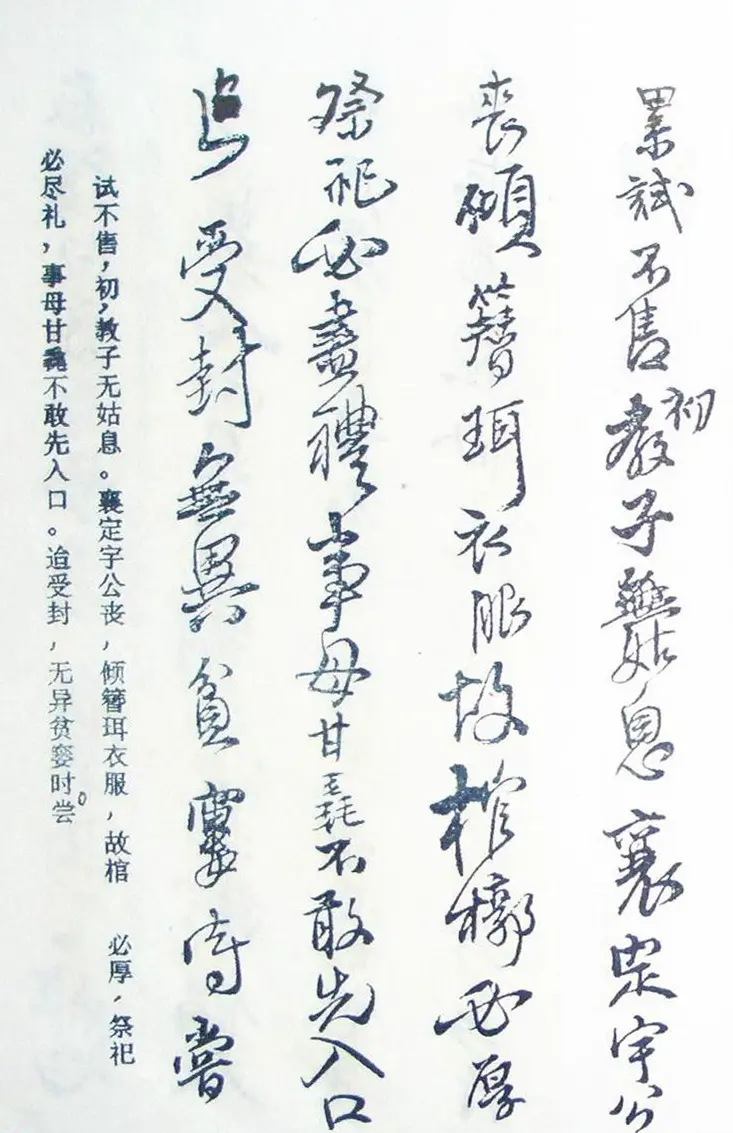 累試不售初教子無姑息襄定宇公
喪傾簪珥衣服故棺槨必厚
祭祀必盡禮事母甘毳不敢先入口
迨受封無異貧窶時嘗
试不售,初,教子无姑息。襄定宇公丧,倾簪珥衣服,故棺 必厚,祭祀
必尽礼,事母甘毳不敢先入口。迨受封,无异贫窭时尝。